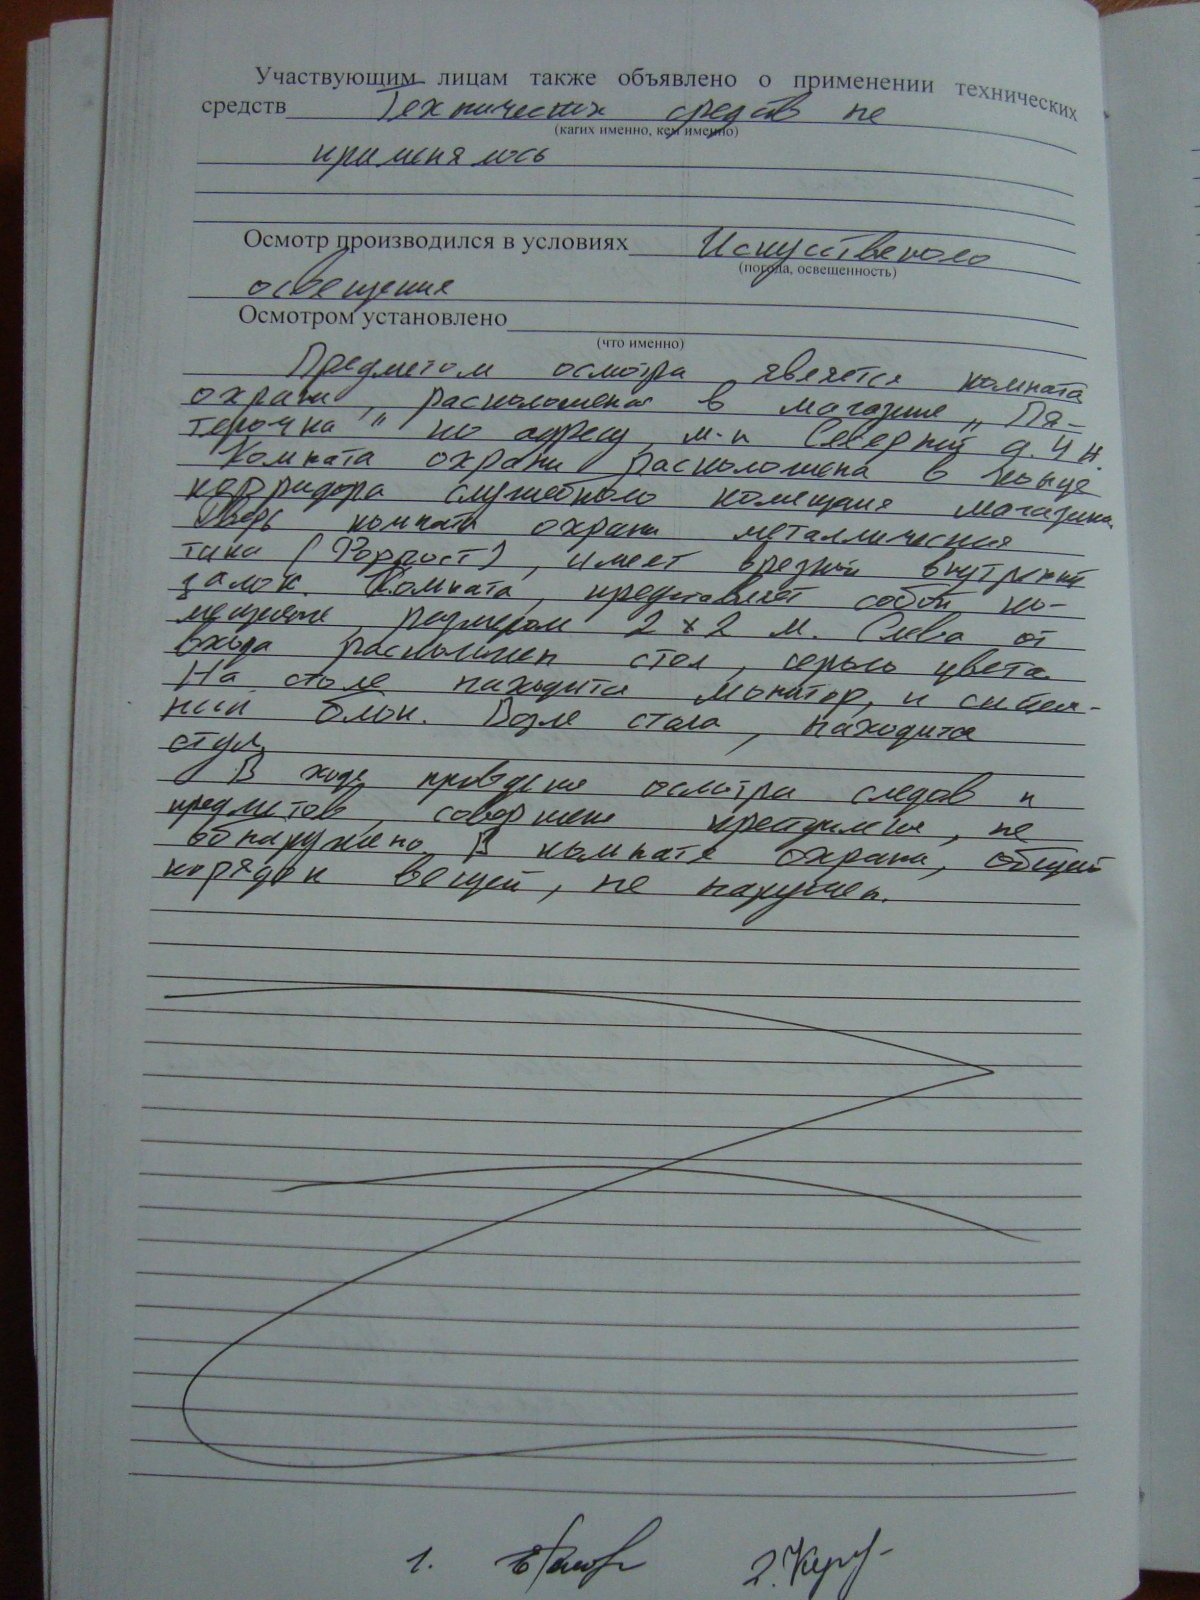 Участвующим лицам также объявлено о применении технических
средств Технических средств не
(каких именно, кем именно)
применялось
Осмотр производился в условиях Искусственого
(погода, освещенность)
освещения
Осмотром установлено
(что именно)
Предметом осмотра является комната
охраны, расположеная в магазине „Пя-
терочка" по адресу м-н Северный д. 4 н.
Комната охраны расположена в конце
корридора служебного помещения магазина.
Дверь комнаты охраны металлическая
типа (Форпост), имеет врезной внутренний
замок. Комната, представляет собой по-
мещение, размером 2 х 2 м. Слева от
входа расположен стол, серого цвета.
На столе находится монитор, и систем-
ный блок. Возле стола, находится
стул.
В ходе проведения осмотра следов и
предметов, совершения преступления, не
обнаружено. В комнате охраны, общий
порядок вещей, не нарушен.
1. 2.